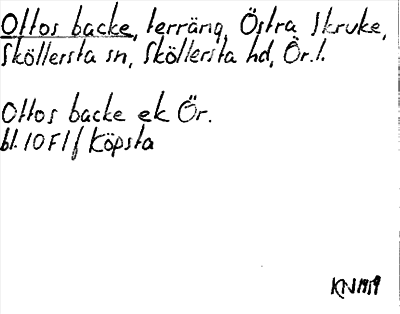 Ottos backe, terräng, Östra Skruke,
Sköllersta sn, Sköllersta hd, Ör. l.
Ottos backe ek Ör.
bl. 10 F 1 f Köpsta
KN 1959